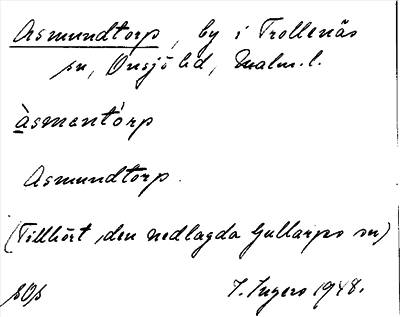 Asmundtorp, by i Trollenäs
sn, Onsjö hd, Malm. l.
àsmentórp
Asmundtorp.
(Tillhört den nedlagda Gullarps sn)
sOs I. Ingers 1948.